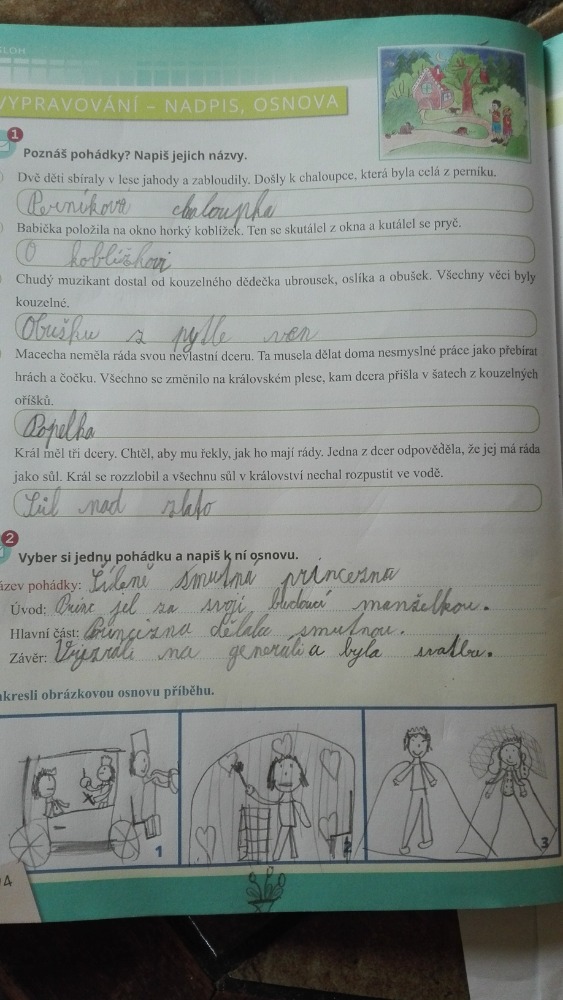 SLOH
VYPRAVOVÁNÍ – NADPIS, OSNOVA
1
Poznáš pohádky? Napiš jejich názvy.
Dvě děti sbíraly v lese jahody a zabloudily. Došly k chaloupce, která byla celá z perníku.
Perníková chaloupka
Babička položila na okno horký koblížek. Ten se skutálel z okna a kutálel se pryč.
O koblížkovi
Chudý muzikant dostal od kouzelného dědečka ubrousek, oslíka a obušek. Všechny věci byly
kouzelné.
Obušku z pytle ven
Macecha neměla ráda svou nevlastní dceru. Ta musela dělat doma nesmyslné práce jako přebírat
hrách a čočku. Všechno se změnilo na královském plese, kam dcera přišla v šatech z kouzelných
oříšků.
Popelka
Král měl tři dcery. Chtěl, aby mu řekly, jak ho mají rády. Jedna z dcer odpověděla, že jej má ráda
jako sůl. Král se rozzlobil a všechnu sůl v království nechal rozpustit ve vodě.
Sůl nad zlato
2
Vyber si jednu pohádku a napiš k ní osnovu.
ázev pohádky: Šíleně smutná princezna
Úvod: Princ jel za svojí budoucí manželkou.
Hlavní část: Princezna dělala smutnou.
Závěr: Vyzráli na generáli a byla svatba.
akresli obrázkovou osnovu příběhu.
1
2
3
4